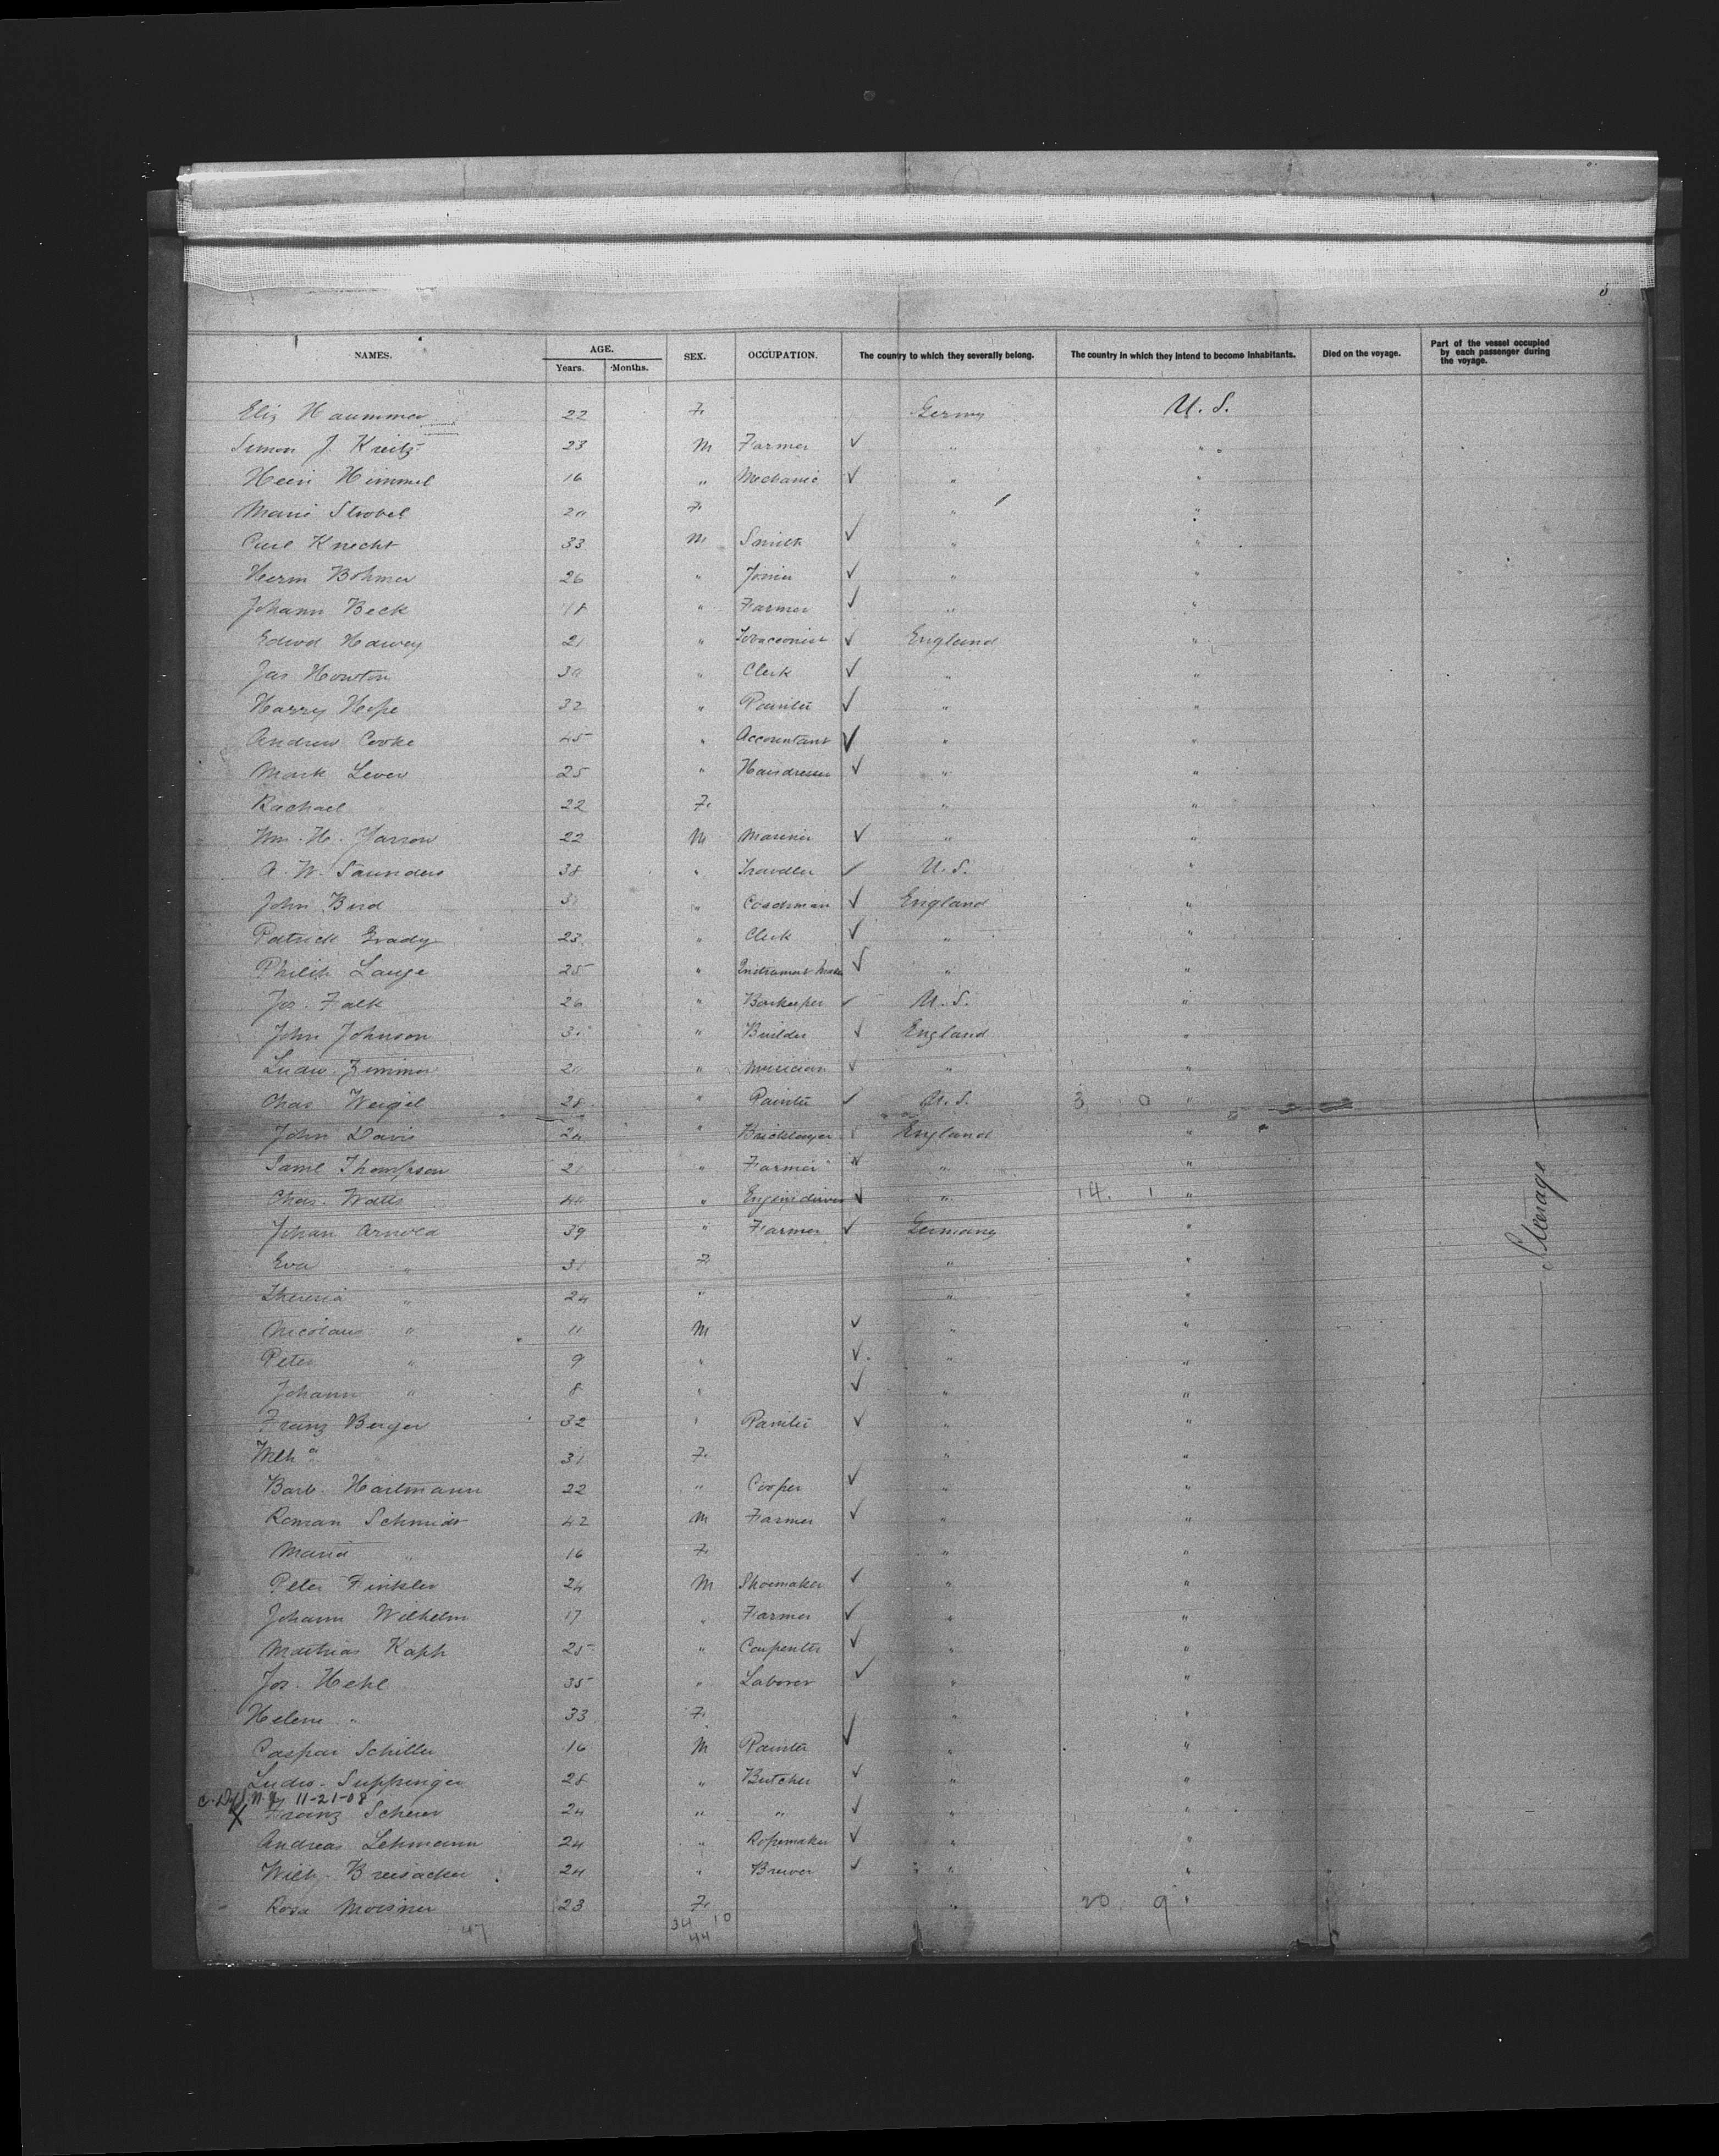 NAMES. AGE. SEX. OCCUPATION. The country to which they severally belong. The country in which they intend to become inhabitants. Died on the voyage. Part of the vessel occupied by each passenger during the voyage.
Years. Months.
Eliz Haummer 22 F. Germy U. S.
Simon J. Kreitz 23 M Farmer ✓ " "
Hein Himmel 16 " Mechanic ✓ " "
Marie Strobel F. " "
Carl Knecht 33 M Smith ✓ " "
Herm Bohmer 26 " Joiner ✓ " "
Johann Beck 18 " Farmer ✓ " "
Edwd Harvey 21 " Tobacconist ✓ England "
Jas Howton 30 " Clerk ✓ " "
Harry Hope 32 " Painter ✓ " "
Andrew Cooke 45 " Accountant ✓ " "
Mark Lever 25 " Hairdresser ✓ " "
Rachael 22 F. " "
Wm. H. Yarrow 22 M Mariner ✓ " "
A. W. Saunders 38 " Traveller ✓ U. S. "
John Bird " Coachman ✓ England "
Patrick Grady 23 " Clerk ✓ " "
Philip Lange 25 " Instrument maker ✓ " "
Jos. Falk 26 " Barkeeper ✓ U. S. "
John Johnson " Builder ✓ England "
Ludw. Zimmer " Musician ✓ " "
Chas Weigel 28 " Painter ✓ U. S. 3 0 "
John Davis 24 " Bricklayer England "
Saml Thompson 21 " Farmer ✓ " "
Chas. Watts 40 " Enginedriver ✓ " 14. 1 "
Johan Arnold 39 " Farmer ✓ Germany "
Eva " 31 F. " "
Theresia " 24 " " "
Nicolaus " 11 M ✓ " "
Peter " 9 " ✓ " "
Johann " 8 " ✓ " "
Franz Berger 32 " Painter ✓ " "
Wilh " 31 F. " "
Barb. Hartmann 22 " Cooper ✓ " "
Roman Schmidt 42 M Farmer ✓ " "
Maria " 16 F. " "
Peter Finkler 24 M Shoemaker ✓ " "
Johann Wilhelm 17 " Farmer ✓ " "
Mathias Kaph 25 " Carpenter ✓ " "
Jos. Hehl 35 " Laborer ✓ " "
Helene " 33 F. " "
Caspar Schiller 16 M Painter ✓ " "
Ludw. Suppinger 28 " Butcher ✓ " "
11-21-08
X Franz Scherer 24 " " ✓ " "
Andreas Lehmann 24 " Ropemaker ✓ " "
Wilh. Breisacher 24 " Brewer ✓ " "
Rosa Moisner 23 F. " 20. 9 "
47 34 10
44
Steerage